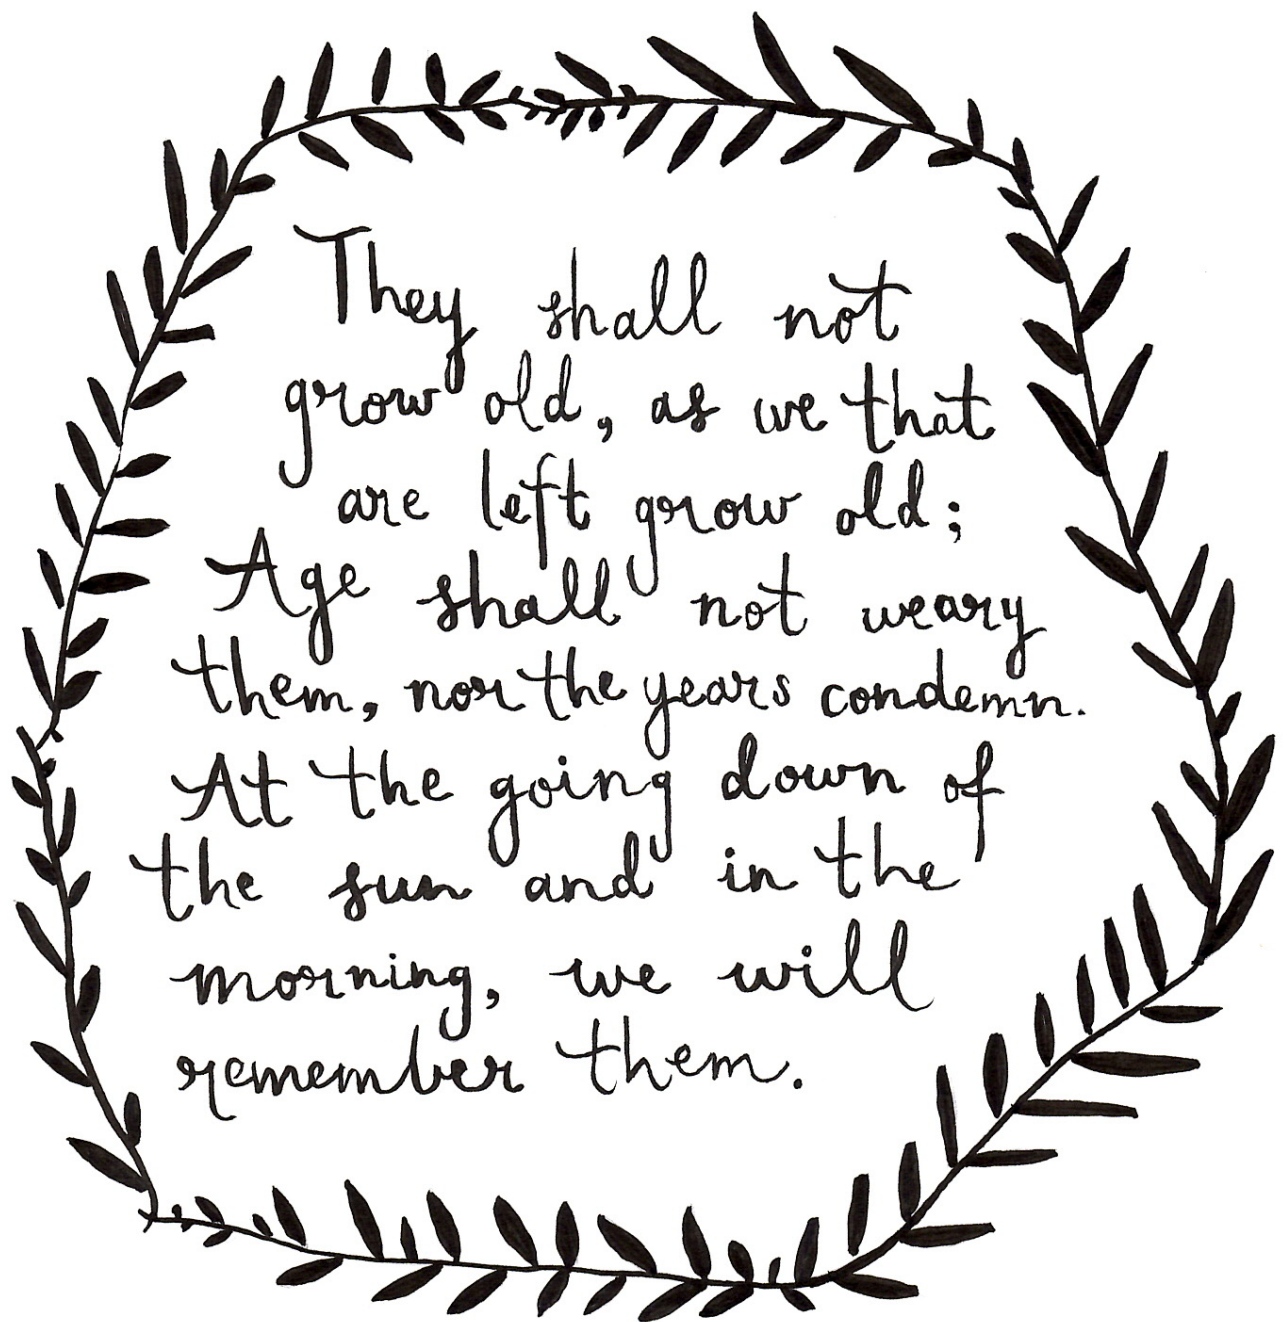 They shall not
grow old, as we that
are left grow old;
Age shall not weary
them, nor the years condemn.
At the going down of
the sun and in the
morning, we will
remember them.